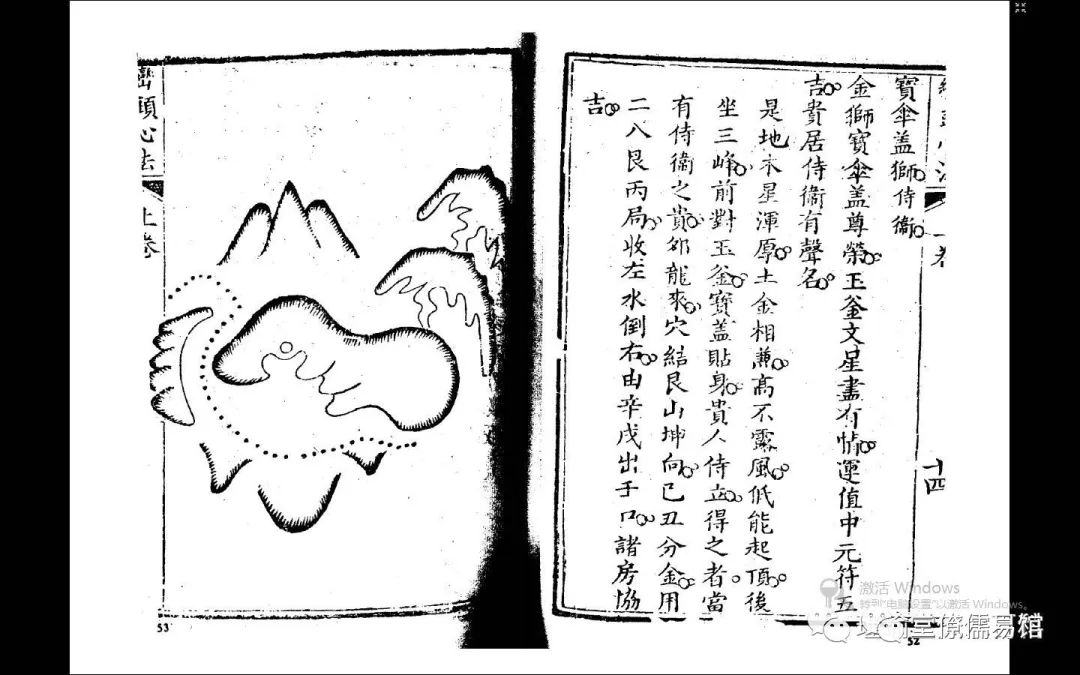 十四
寶傘盖獅侍衞。
金獅寶傘盖尊榮。玉釜文星盡有情。運值中元符五
吉。貴居侍衞有聲名。
是地木星渾厚。土金相兼。高不露風。低能起頂。後
坐三峰。前對玉釜。寶蓋貼身。貴人侍立。得之者。當
有侍衞之貴。夘龍來。穴結艮山坤向。己丑分金。用
二八艮丙局。收左水倒右。由辛戌出于口。諸房協
吉。
52
巒頭心法
上卷
53
激活 Windows
转到"电脑设置"以激活 Windows。
堂儒易馆